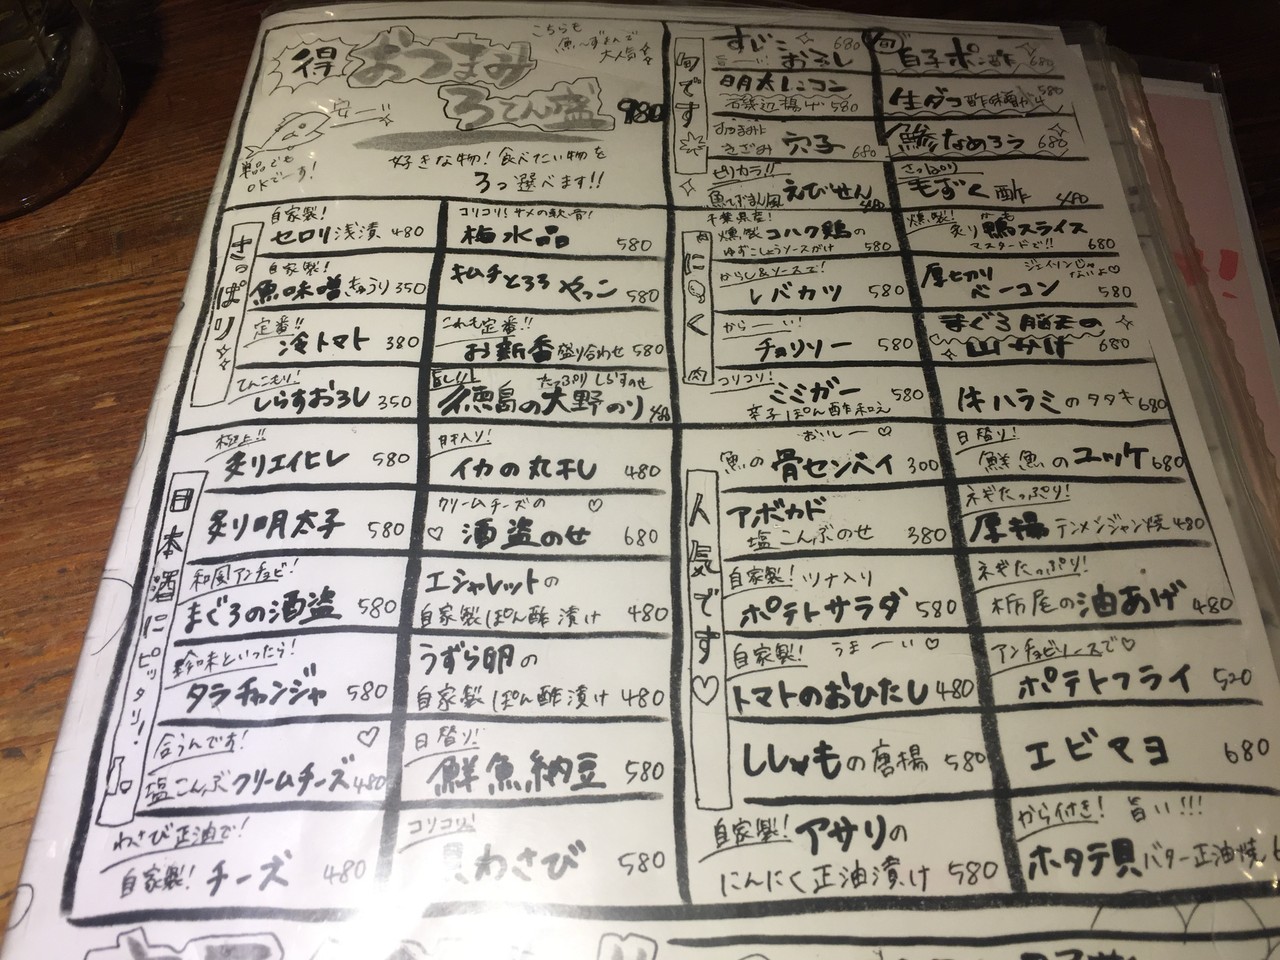 得
おつまみ
3てん盛 980
こちらも
魚〜ずまんで
大人気
安〜い
単品でも
OKでーす!
好きな物!食べたい物を
3つ選べます!!
旬です
すじこ
おろし 680
白子ポン酢 680
明太レンコン
石築辺揚げ 580
生ダコ 580
穴子 680
鯵なめろう 680
ピリカラ!!
えびせん 480
さっぱり
もずく酢 480
さっぱり
自家製!
セロリ浅漬 480
コリコリ!サメの軟骨!
梅水晶 580
自家製!
魚味噌きゅうり 350
キムチとろろやっこ 580
定番!!
冷トマト 380
これも定番!!
お新香盛り合わせ 580
てんこもり!
しらすおろし 350
たっぷりしらすのせ
徳島の大野のり 480
にく
肉
千葉県産!
燻製コハク鶏の
ゆずこしょうソースがけ 580
燻製!
炙り鴨スライス
マスタードで!! 680
からし&ソースで!
レバカツ 580
厚切り
ベーコン 580
ジェイソンじゃ
ないよ♡
から〜い!
チョリソー 580
まぐろ脳天の
山かけ 680
コリコリ!
ミミガー 580
辛子ぽん酢和え
牛ハラミのタタキ 680
日本酒にピッタリ!
極上!!
炙りエイヒレ 580
肝入り!
イカの丸干し 480
炙り明太子 580
クリームチーズの ♡
♡ 酒盗のせ 680
和風アンチョビ!
まぐろの酒盗 580
エシャレットの
自家製ぽん酢漬け 480
珍味といったら!
タラチャンジャ 580
うずら卵の
自家製ぽん酢漬け 480
合うんです! ♡
塩こんぶクリームチーズ 480
日替り!
鮮魚納豆 580
わさび正油で!
自家製!チーズ 480
コリコリ!
貝わさび 580
人気です♡
おいしー♡
魚の骨センベイ 300
日替り!
鮮魚のユッケ 680
アボカド
塩こんぶのせ 380
ネギたっぷり!
厚揚テンメンジャン焼 480
自家製!ツナ入り
ポテトサラダ 580
ネギたっぷり!
栃尾の油あげ 480
自家製! うまーーい♡
トマトのおひたし 480
アンチョビソースで♡
ポテトフライ 520
ししゃもの唐揚 580
エビマヨ 680
自家製!アサリの
にんにく正油漬け 580
から付き! 旨い!!!
ホタテ貝バター正油焼